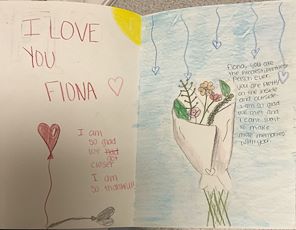 I LOVE
YOU
FIONA
I am
so glad
we had
got
closer
I am
so thankful!
Fiona, you are
the prettiest
person ever.
you are pretty
on the inside
and outside.
I am so glad
we met and
I can't wait
to make
more memories
with you